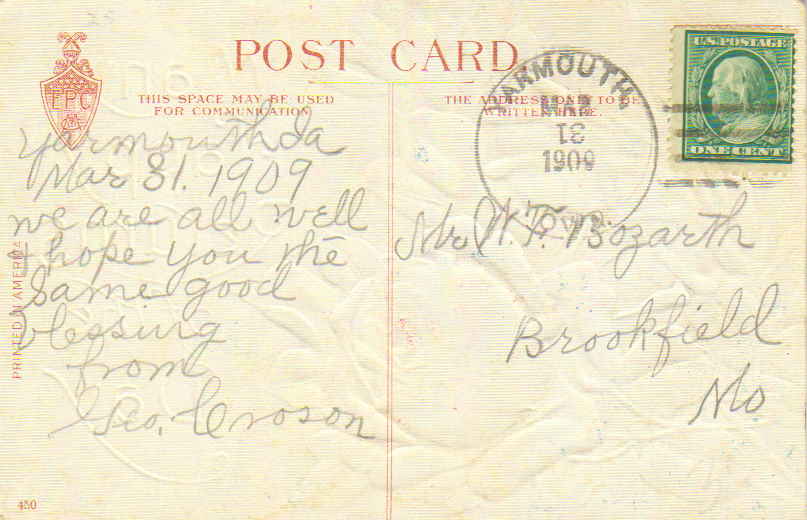 POST CARD
EPC
THIS SPACE MAY BE USED
FOR COMMUNICATION
THE ADDRESS ONLY TO BE
WRITTEN HERE.
Yarmouth Ia
Mar 31. 1909
we are all well
& hope you the
same good
blessing
from
Geo. Croson
PRINTED IN AMERICA
450
YARMOUTH
MAR
31
1909
Iowa.
U.S. POSTAGE
ONE CENT
Mr W. P. Bozarth
Brookfield
Mo